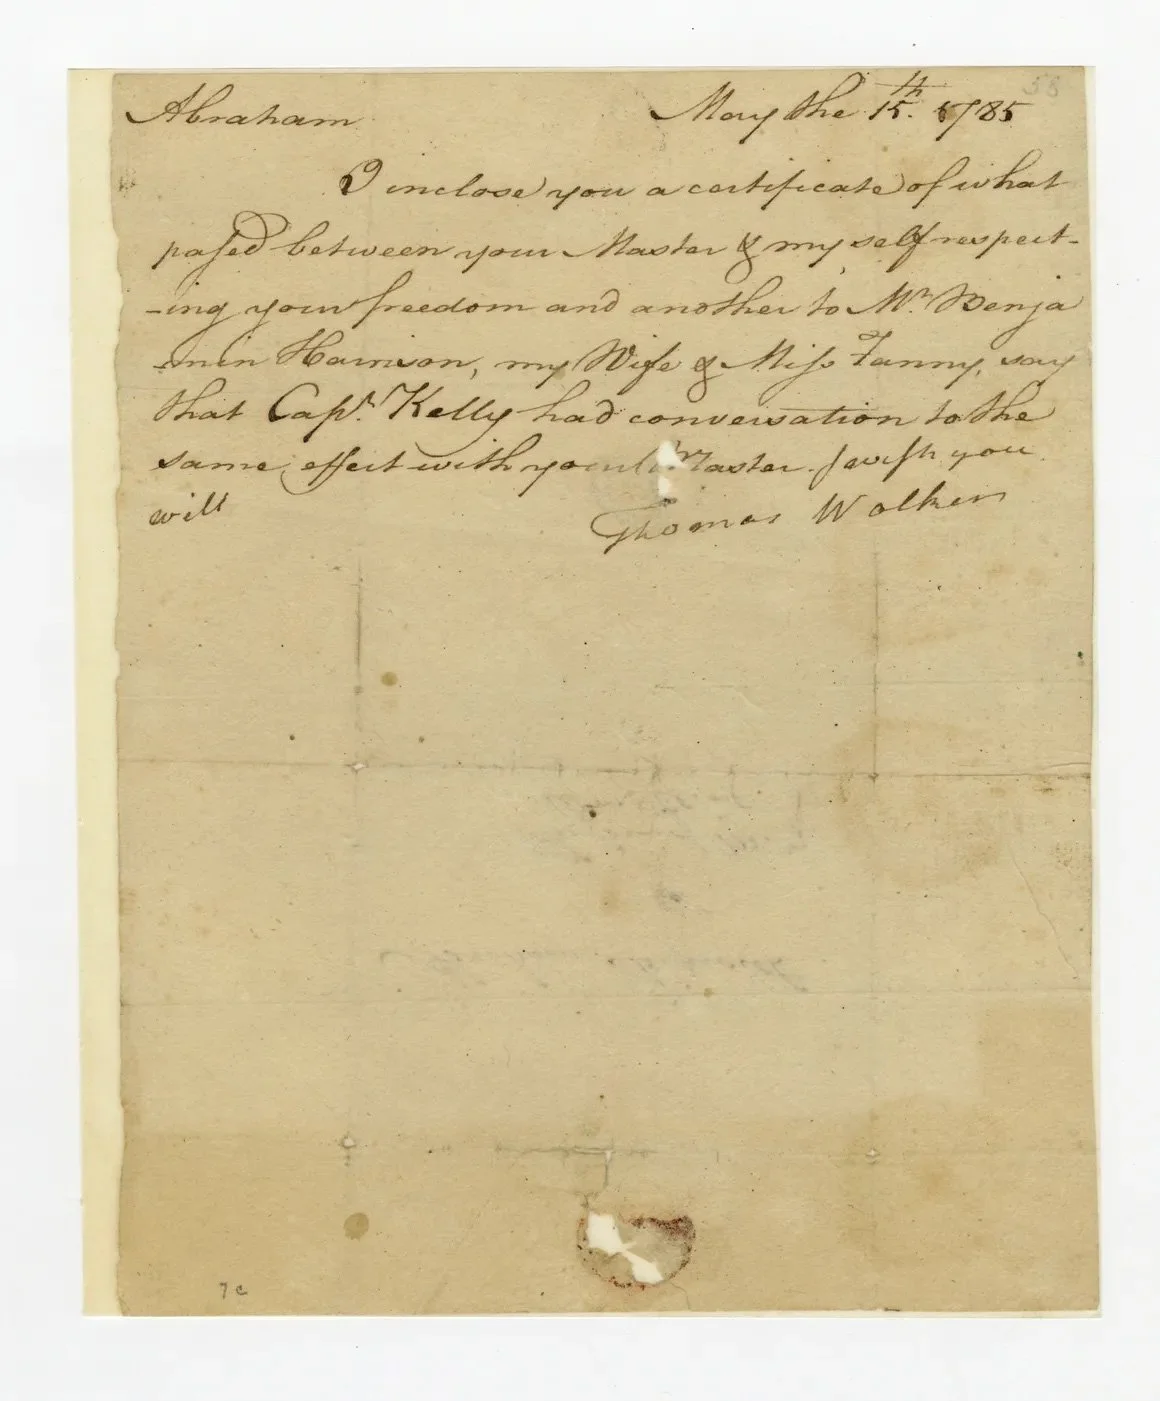 58
Abraham May the 15th. 1785
I inclose you a certificate of what
paſsed between your Master & my self respect-
-ing your freedom and another to Mr. Benja
-min Harrison, my Wife & Miſs Fanny, say
that Capt. Kelly had conversation to the
same effect with your Master. I wiſh you
will Thomas Walker
7c